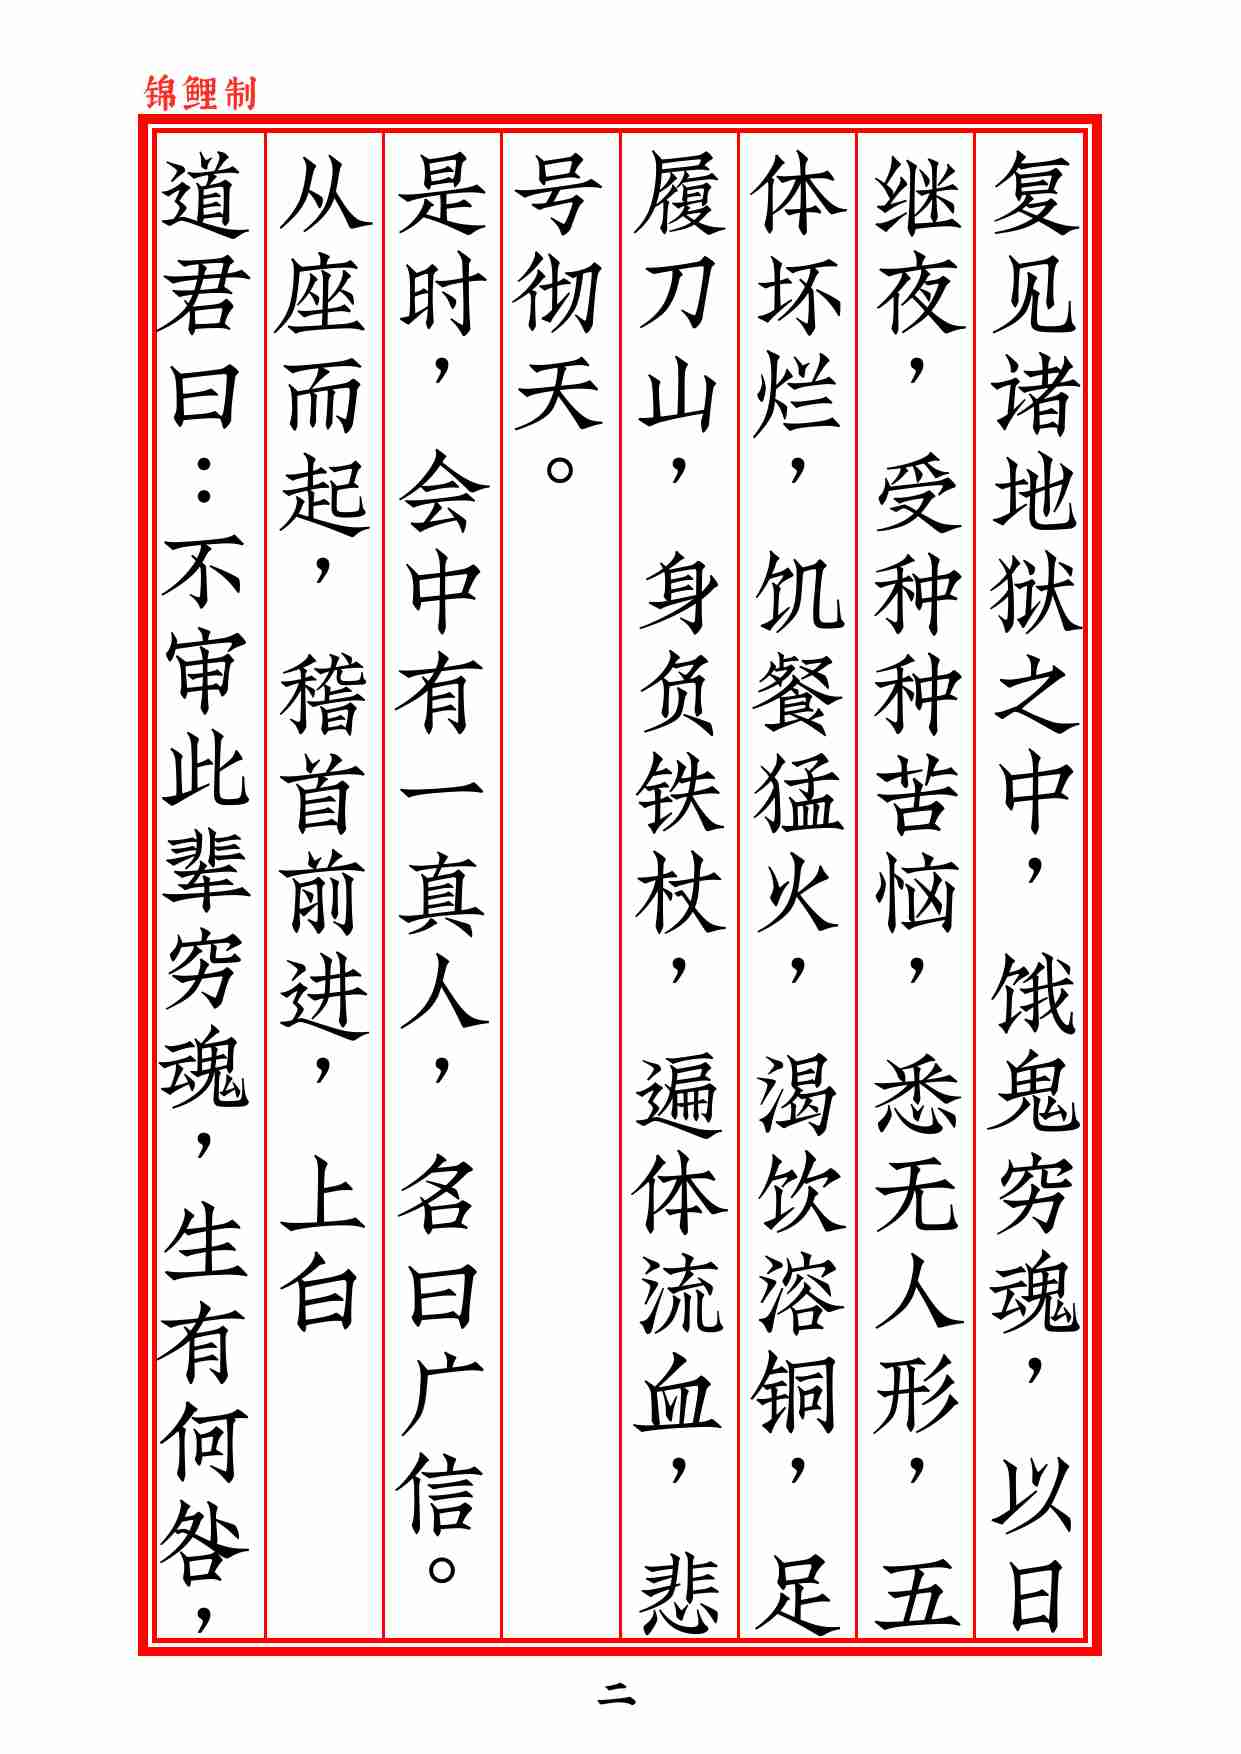 锦鲤制
复见诸地狱之中，饿鬼穷魂，以日
继夜，受种种苦恼，悉无人形，五
体坏烂，饥餐猛火，渴饮溶铜，足
履刀山，身负铁杖，遍体流血，悲
号彻天。
是时，会中有一真人，名曰广信。
从座而起，稽首前进，上白
道君曰：不审此辈穷魂，生有何咎，
二